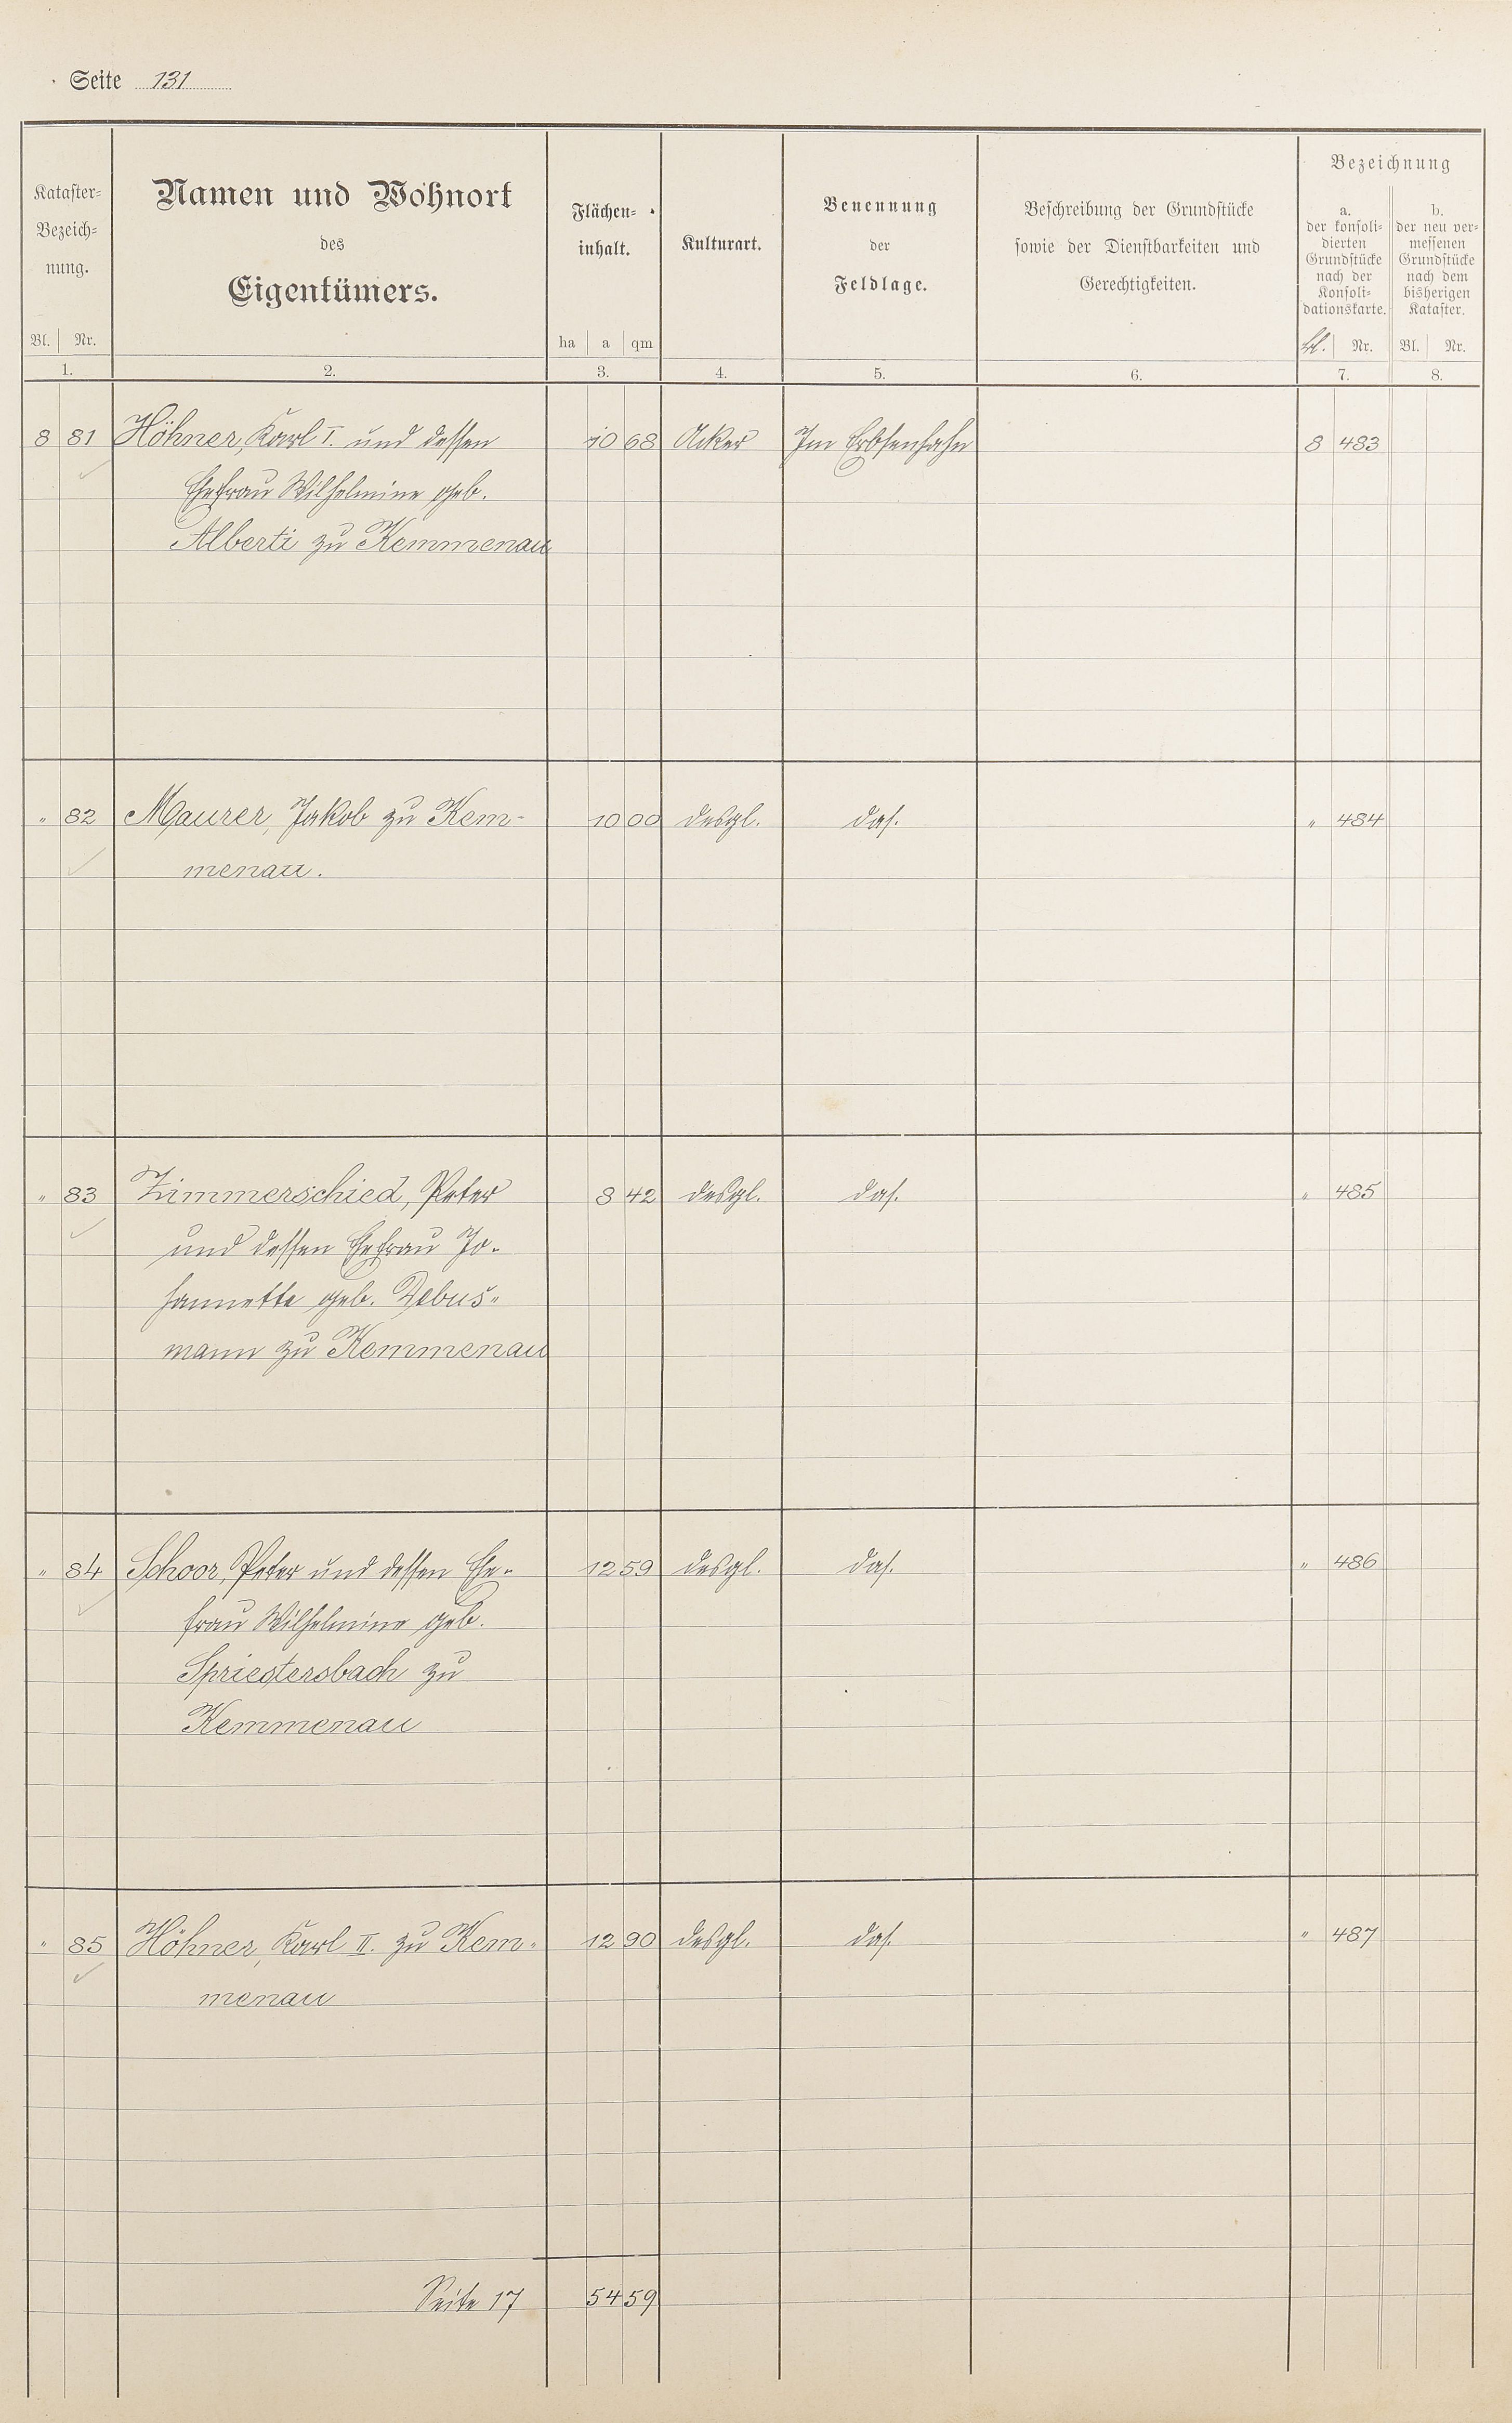 Seite 131
Kataster-
Bezeich-
nung.
Bl. Nr.
1.
Namen und Wohnort
des
Eigentümers.
2.
Flächen-
inhalt.
ha a qm
3.
Kulturart.
4.
Benennung
der
Feldlage.
5.
Beschreibung der Grundstücke
sowie der Dienstbarkeiten und
Gerechtigkeiten.
6.
Bezeichnung
a.
der konsoli-
dierten
Grundstücke
nach der
Konsoli-
dationskarte.
Bl. Nr.
7.
b.
der neu ver-
messenen
Grundstücke
nach dem
bisherigen
Kataster.
Bl. Nr.
8.
8 81 Höhner, Karl I. und dessen 10 68 Acker Im Erbsenhahn 8 483
Ehefrau Wilhelmine geb.
Alberti zu Kemmenau
" 82 Maurer, Jakob zu Kem- 10 00 desgl. das. " 484
menau.
" 83 Zimmerschied, Peter 8 42 desgl. das. " 485
und dessen Ehefrau Jo-
hannette geb. Debus-
mann zu Kemmenau
" 84 Schoor, Peter und dessen Ehe- 12 59 desgl. das. " 486
frau Wilhelmine geb.
Spriestersbach zu
Kemmenau
" 85 Höhner, Karl II. zu Kem- 12 90 desgl. das. " 487
menau
Seite 17 54 59